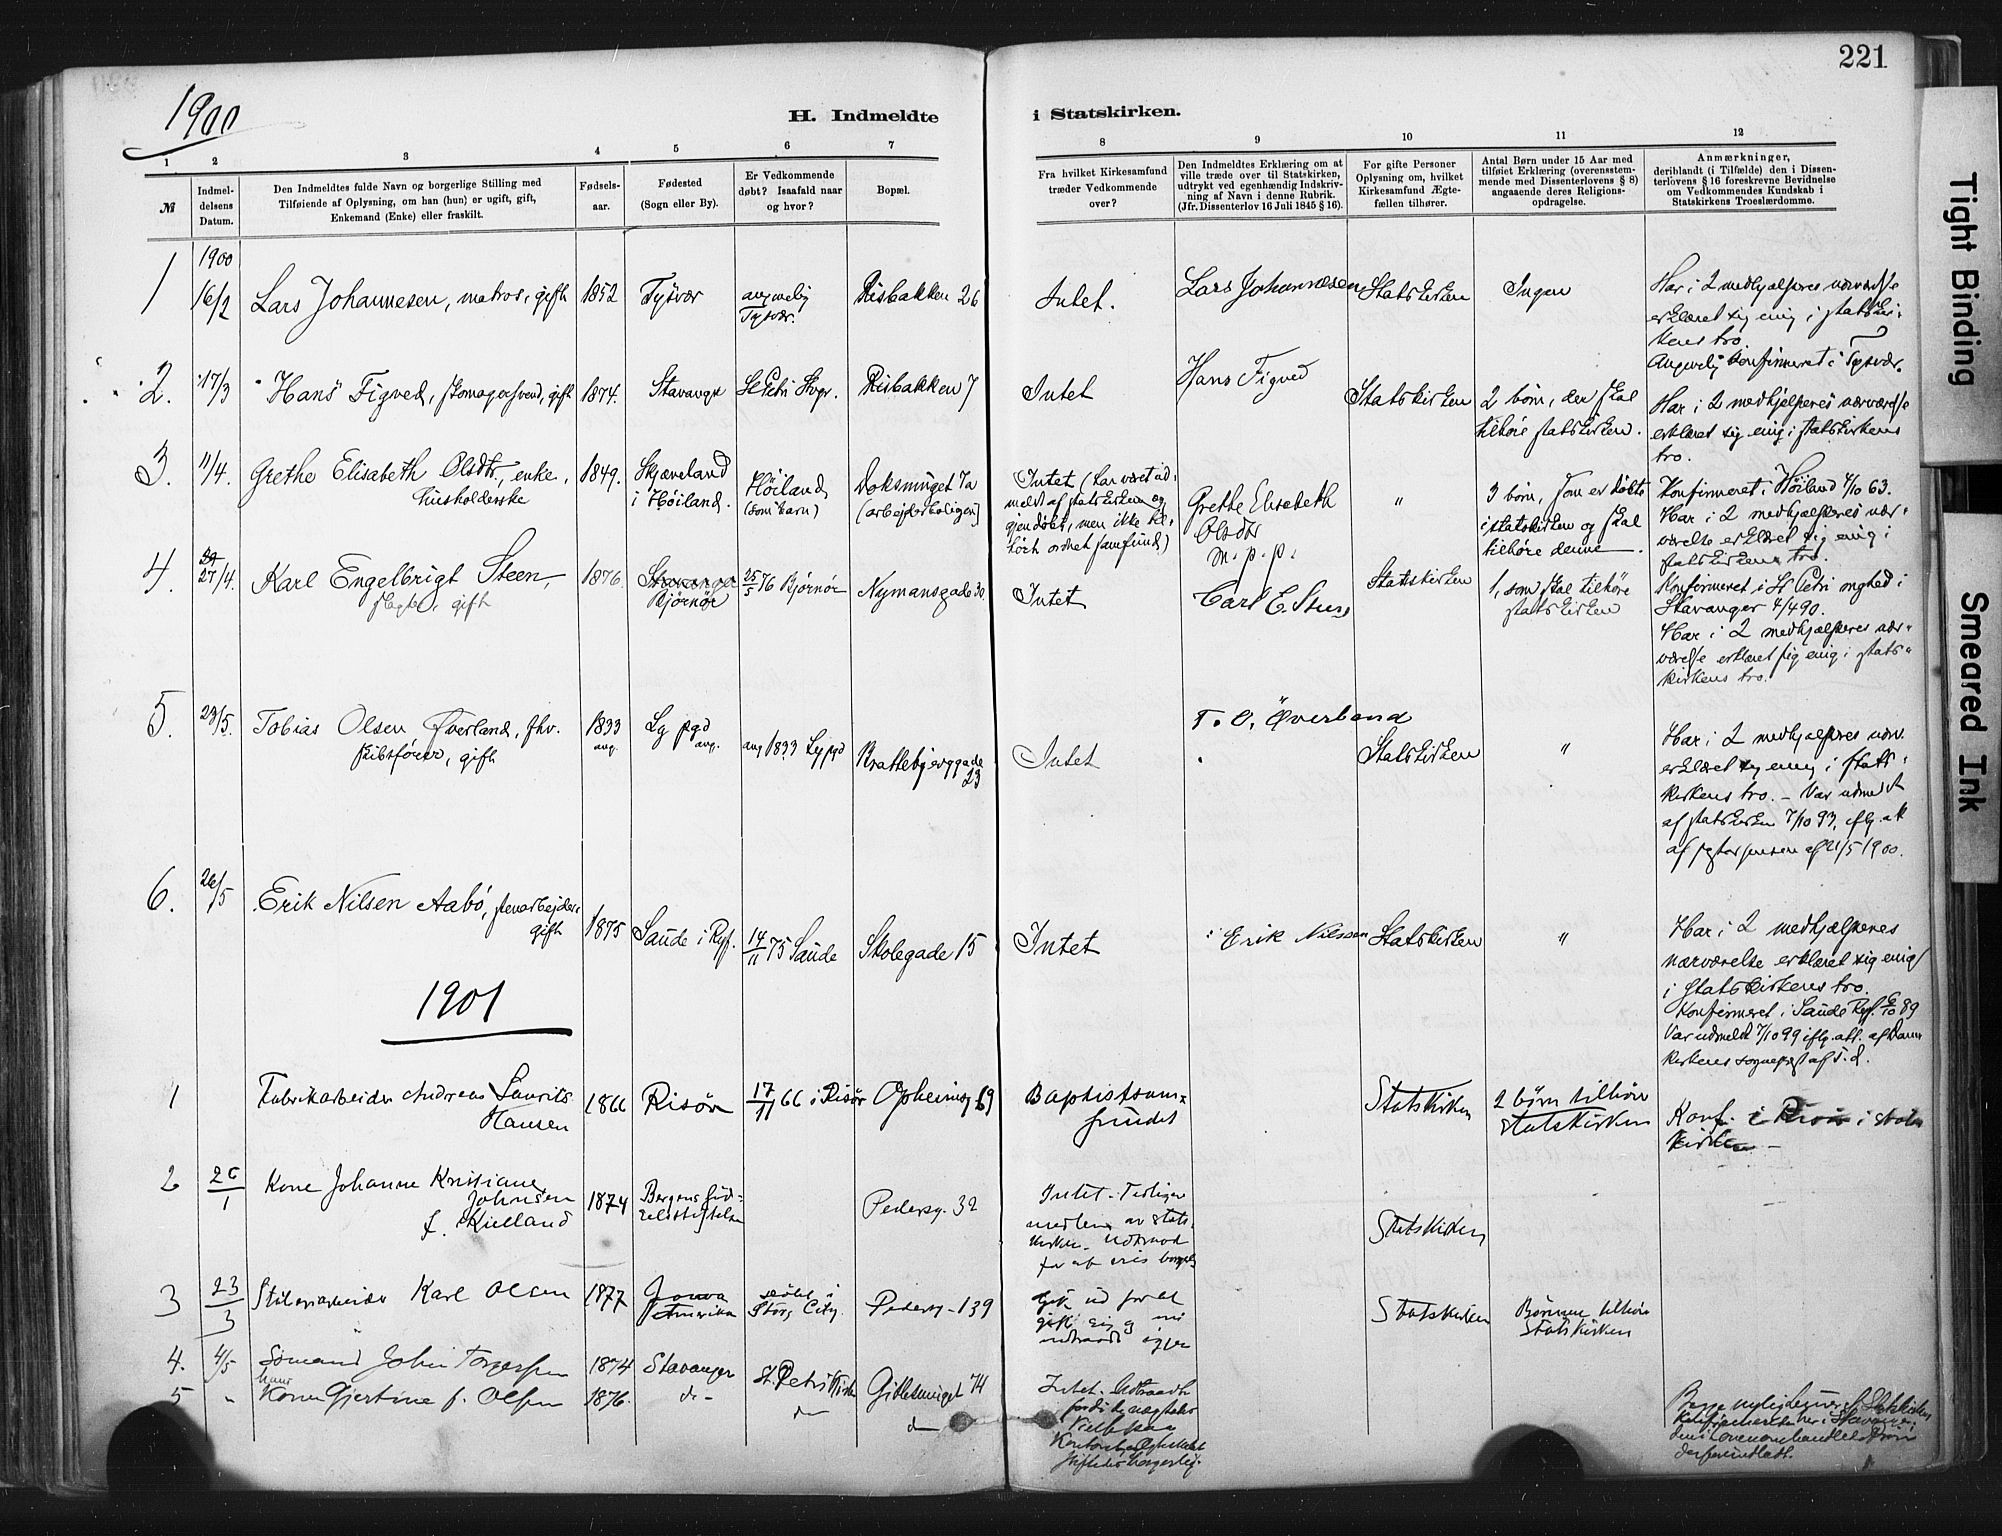 221
1900
H. Indmeldte i Statskirken.
1 2 3 4 5 6 7 8 9 10 11 12
№
Indmel-
delsens
Datum.
Den Indmeldtes fulde Navn og borgerlige Stilling med
Tilføiende af Oplysning, om han (hun) er ugift, gift,
Enkemand (Enke) eller fraskilt.
Fødsels-
aar.
Fødested
(Sogn eller By).
Er Vedkommende
døbt? Isaafald naar
og hvor?
Bopæl.
Fra hvilket Kirkesamfund
træder Vedkommende
over?
Den Indmeldtes Erklæring om at
ville træde over til Statskirken,
udtrykt ved egenhændig Indskriv-
ning af Navn i denne Rubrik.
(Jfr. Dissenterlov 16 Juli 1845 § 16).
For gifte Personer
Oplysning om, hvilket
Kirkesamfund Ægte-
fællen tilhører.
Antal Børn under 15 Aar med
tilføiet Erklæring (overensstem-
mende med Dissenterlovens § 8)
angaaende deres Religions-
opdragelse.
Anmærkninger,
deriblandt (i Tilfælde) den i Dissen-
terlovens § 16 foreskrevne Bevidnelse
om Vedkommendes Kundskab i
Statskirkens Troeslærdomme.
1900
1 16/2 Lars Johannesen, matros, gift 1852 Tysvær angivelig
Tysvær. Risbakken 26 Intet. Lars Johannesen Statskirken Ingen
Har i 2 medhjælperes nærværelse
erklæret sig enig i statskir-
kens tro.
Angivelig konfirmeret i Tysvær.
2. 17/3 Hans Figved, skomagersvend, gift 1874. Stavanger St Petri Stvgr. Risbakken 7 Intet Hans Figved Statskirken 2 børn, der skal
tilhøre statskirken.
Har i 2 medhjælperes nærværelse
erklæret sig enig i statskirkens
tro.
3. 11/4. Grethe Elisabeth Olsdtr, enke,
husholderske 1849. Skjæveland
i Høiland. Høiland
(som barn) Doksmuget 7a
(arbejderboligen)
Intet (har været ud-
meldt af statskirken og
gjendøbt, men ikke til-
hørt ordnet samfund)
Grethe Elisabeth
Olsdtr
m. p. p.
" 3 børn, som er døbte
i statskirken og skal
tilhøre denne.
Konfirmeret i Høiland 4/10 63.
Har i 2 medhjælperes nær-
værelse erklæret sig enig i
statskirkens tro.
4. 27/4. Karl Engelbrigt Steen,
gift 1876. Stavanger
Bjørnør 25/5 76 Bjørnør Nymansgade 30 Intet Carl E. Steen Statskirken 1, som skal tilhøre
statskirken
Konfirmeret i St Petri mghed i
Stavanger 4/4 90.
Har i 2 medhjælperes nær-
værelse erklæret sig enig i stats-
kirkens tro.
5. 23/5. Tobias Olsen Øverland, fhv.
skibsfører, gift 1833
ang. Ly pgd
ang. ang 1833 Ly pgd Brattebjerggade
23 Intet T. O. Øverland Statskirken "
Har i 2 medhjælperes nærv.
erklæret sig enig i stats-
kirkens tro. - Var udmeldt
af statskirken 7/10 93, iflg. att.
af 21/5 1900.
6. 26/5 Erik Nilsen Aabø, stenarbejder,
gift 1875 Saude i Ryf. 14/11 75 Saude Skolegade 15 Intet Erik Nilssen Statskirken "
Har i 2 medhjælperes
nærværelse erklæret sig enig
i statskirkens tro.
Konfirmeret i Saude Ryf. 6/10 89
Var udmeldt 7/10 99 iflg. att. af Dom-
kirkens sognepræst af s. d.
1901
1 Fabrikarbeider Andreas Laurits
Hansen 1866 Risør 17/11 66 i Risør Opheimsg 69 Baptistsam-
fundet Statskirken 2 børn tilhør
statskirken
Konf. i Risør i stats
kirken -
2 26/1 Kone Johanne Kristiane
Johnsen
f. Kielland 1874 Bergens fød-
selsstiftelse Pedersg. 32
Intet - Tidligere
medlem av stats-
kirken. Udtraad
for at vies borgerl
Statskirken
3 23/3 Karl Olsen 1877 Jowa
Amerika døbt i
City. Pedersg - 139
Gik ud for at
gifte sig og vil
indtræde igjen
Statskirken Børnene tilhør
Statskirken
4. 4/5 Sømand John Torgersen 1874 Stavanger St. Petri Kirke Gilbesmuget 74
5 " hans
Kone Gjertine f. Olsen 1876. do - do do
Intet. Udtraadt
fordi de